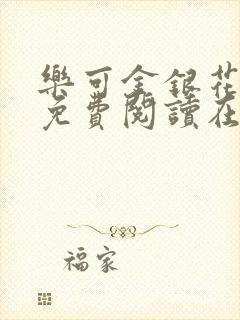 樂可金銀花
免費閱讀在
福家